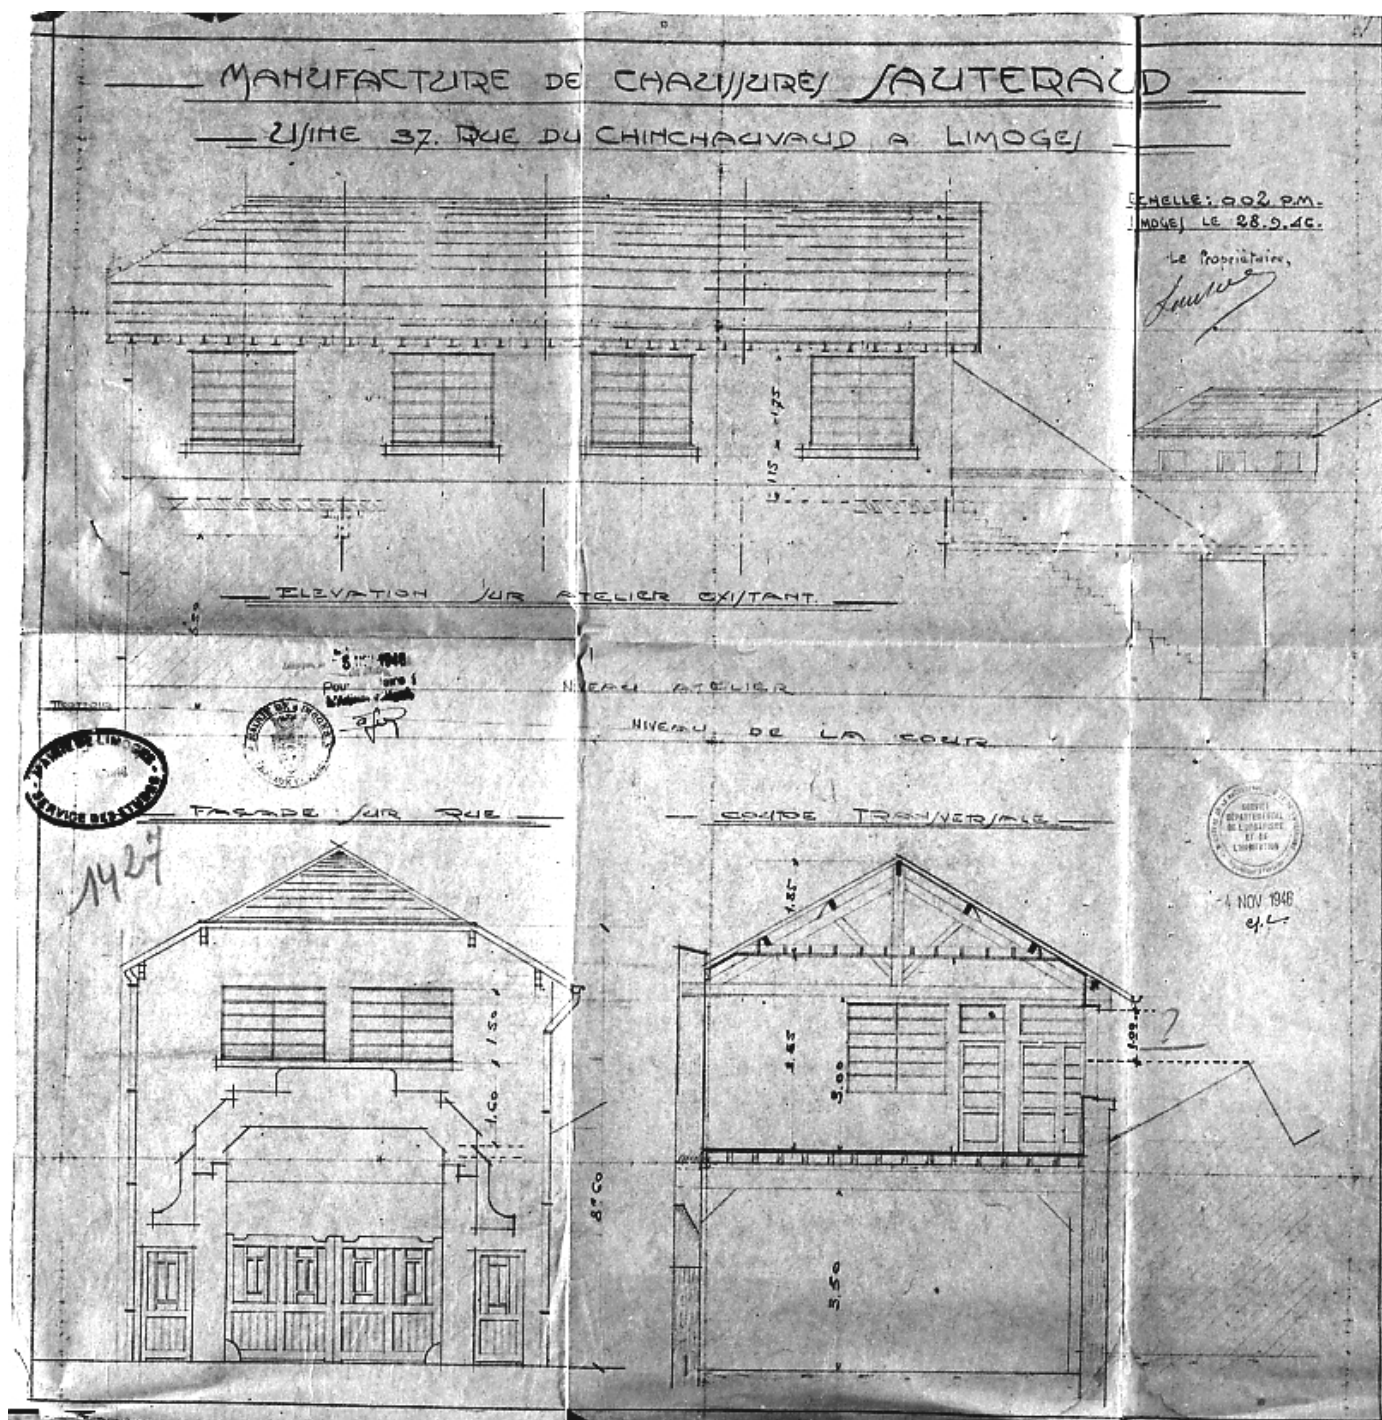 MANUFACTURE DE CHAUSSURES SAUTERAUD
USINE 37. RUE DU CHINCHAUVAUD A LIMOGES
ECHELLE: 0.02 P.M.
LIMOGES LE 28.9.46.
Le Propriétaire,
1.75
1.15
ELEVATION SUR ATELIER EXISTANT.
1946
Pour
NIVEAU ATELIER
TROTTOIR
NIVEAU DE LA COUR
MAIRIE DE LIMOGES
MAIRIE DE LIMOGES
SERVICE DES
FAÇADE SUR RUE
COUPE TRANSVERSALE
1427
SERVICE
DÉPARTEMENTAL
DE L'URBANISME
ET DE
L'HABITATION
-4 NOV 1946
1.85
1.50
1.60
8.60
3.00
1.00
?
3.50